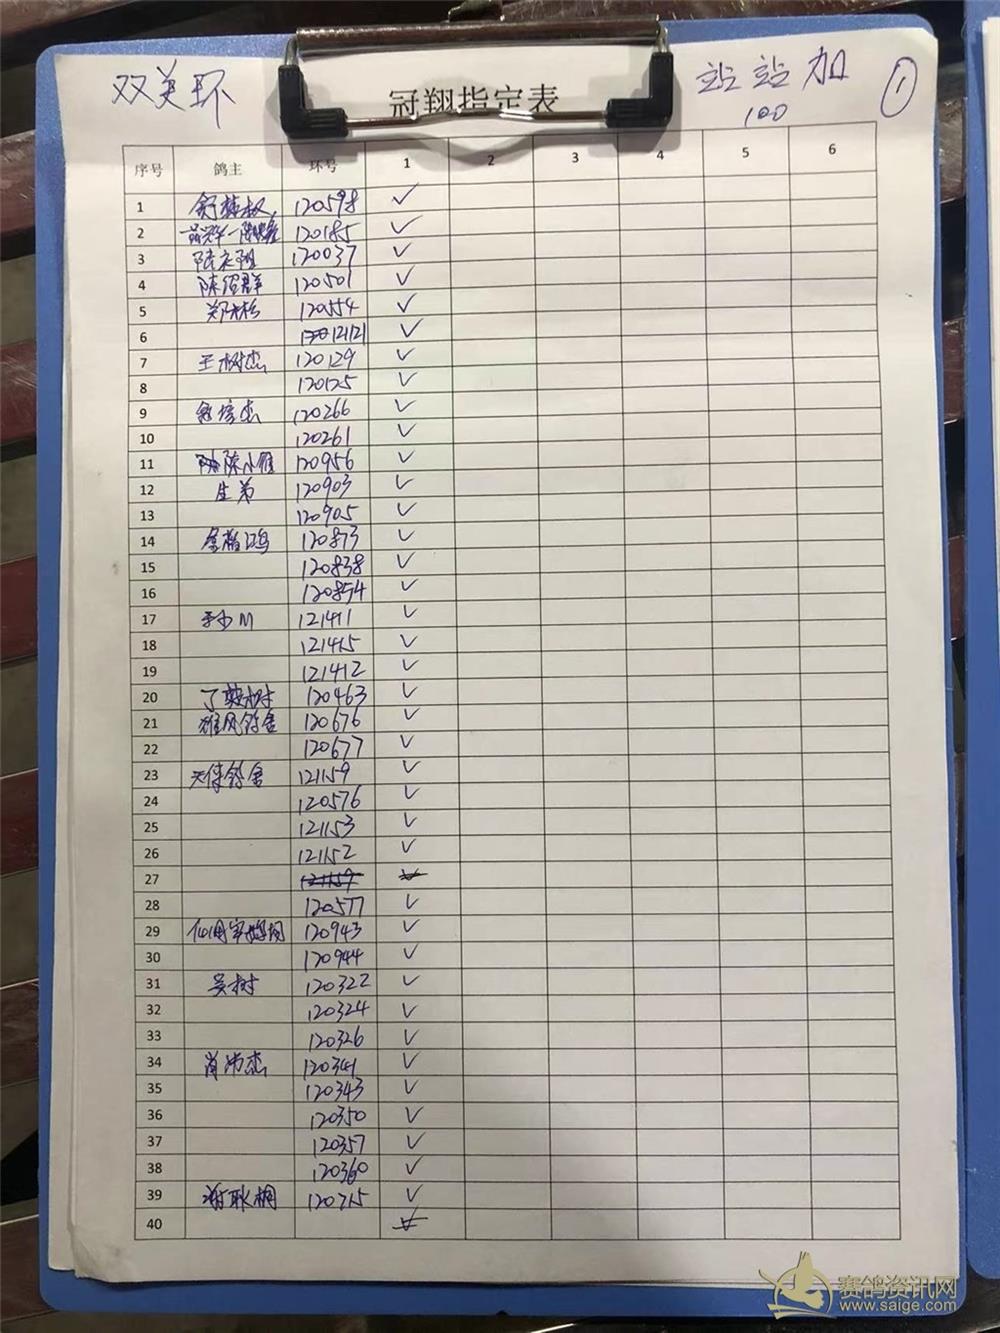 双美环
站站加
①
冠翔指定表
100
序号 鸽主 环号 1 2 3 4 5 6
1 120598 ✓
2 120185 ✓
3 120037 ✓
4 陈绍群 120501 ✓
5 120554 ✓
6 121121 ✓
7 王树杰 120129 ✓
8 120125 ✓
9 120266 ✓
10 120261 ✓
11 陈小雁 120956 ✓
12 生弟 120903 ✓
13 120905 ✓
14 120873 ✓
15 120838 ✓
16 120854 ✓
17 121411 ✓
18 121415 ✓
19 121412 ✓
20 120463 ✓
21 雄风鸽舍 120676 ✓
22 120677 ✓
23 天使鸽舍 121159 ✓
24 120576 ✓
25 121153 ✓
26 121152 ✓
27 121159 ✓
28 120577 ✓
29 120943 ✓
30 120944 ✓
31 吴树 120322 ✓
32 120324 ✓
33 120326 ✓
34 肖沛杰 120341 ✓
35 120343 ✓
36 120350 ✓
37 120357 ✓
38 120360 ✓
39 谢耿桐 120715 ✓
40 ✓
赛鸽资讯网
www.saige.com